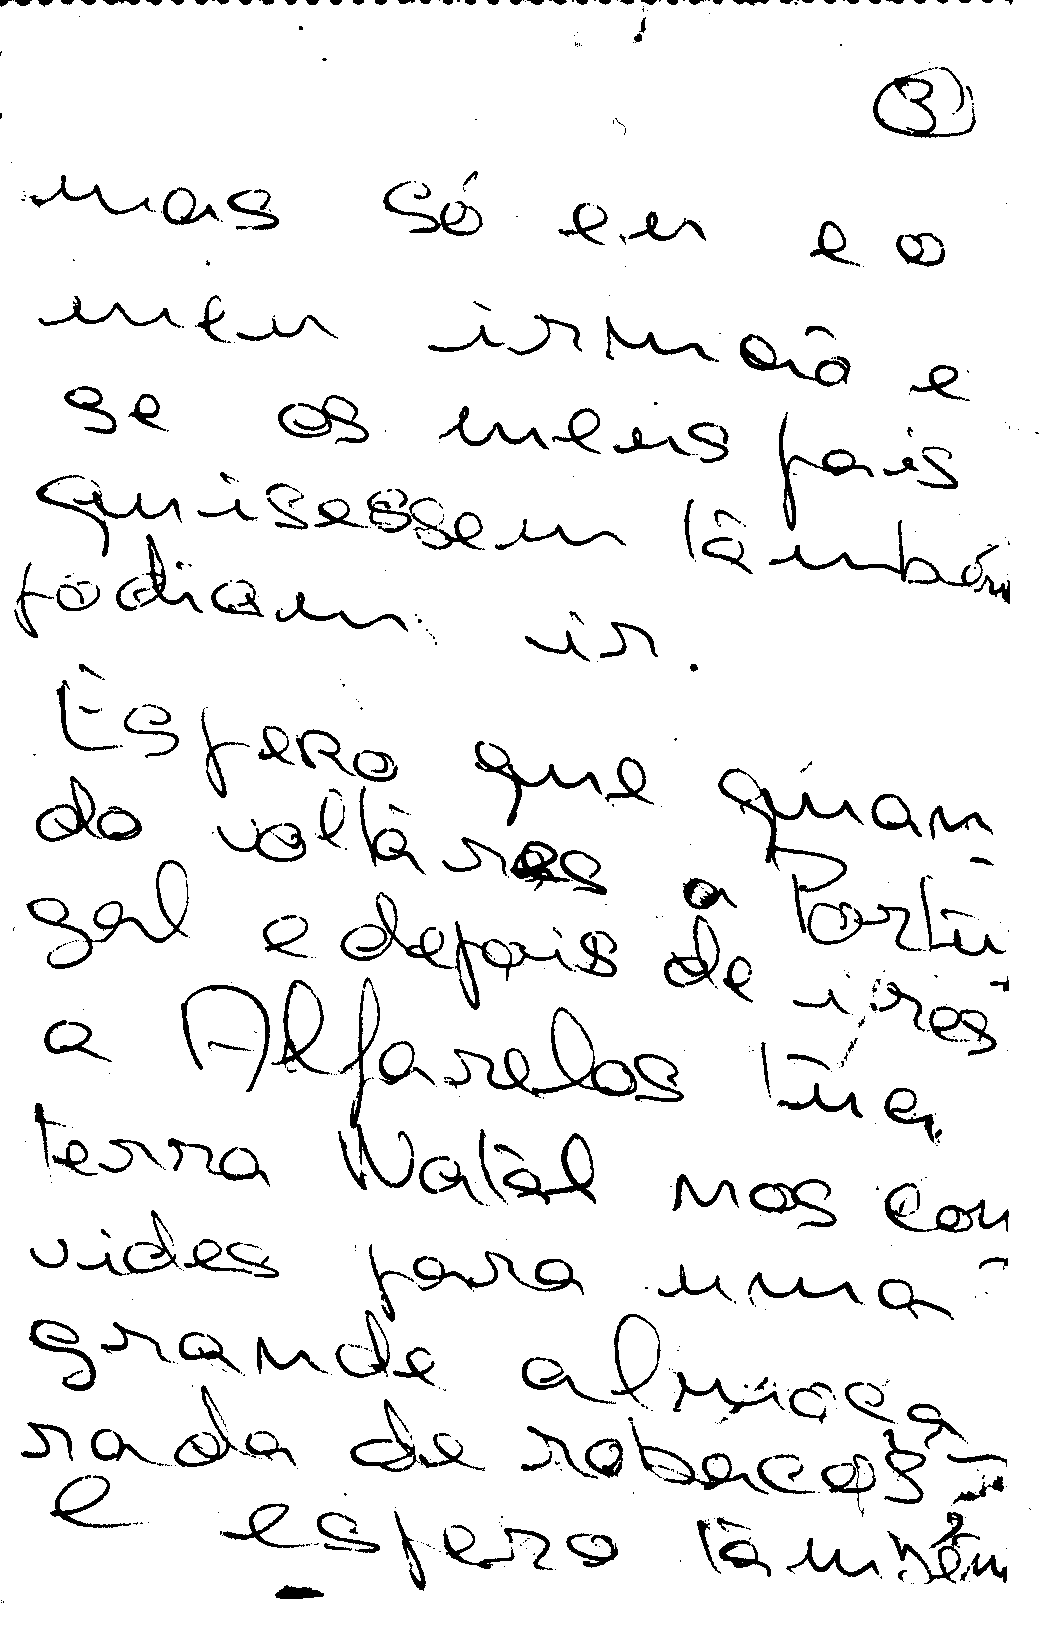 3
mas só eu e o
meu irmão e
se os meus pais
quisessem também
podiam ir.
Espero que quan
do voltares a Portu-
gal e depois de ires
a Alfarelos tua
terra Natal nos con-
vides para uma
grande almoça-
rada de robacos
e espero também